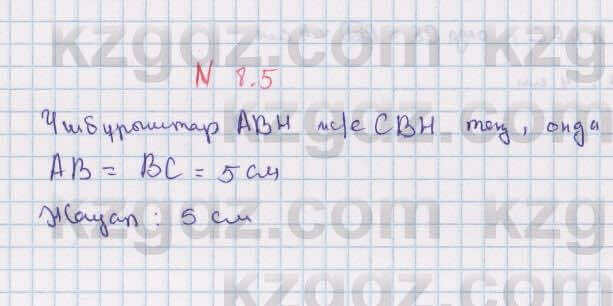 kzgdz.com kzgdz.com
N 8.5
Үшбұрыштар ABH ж/е CBH тең, онда
AB = BC = 5 см
Жауап: 5 см
kzgdz.com kzg
kzgdz.com